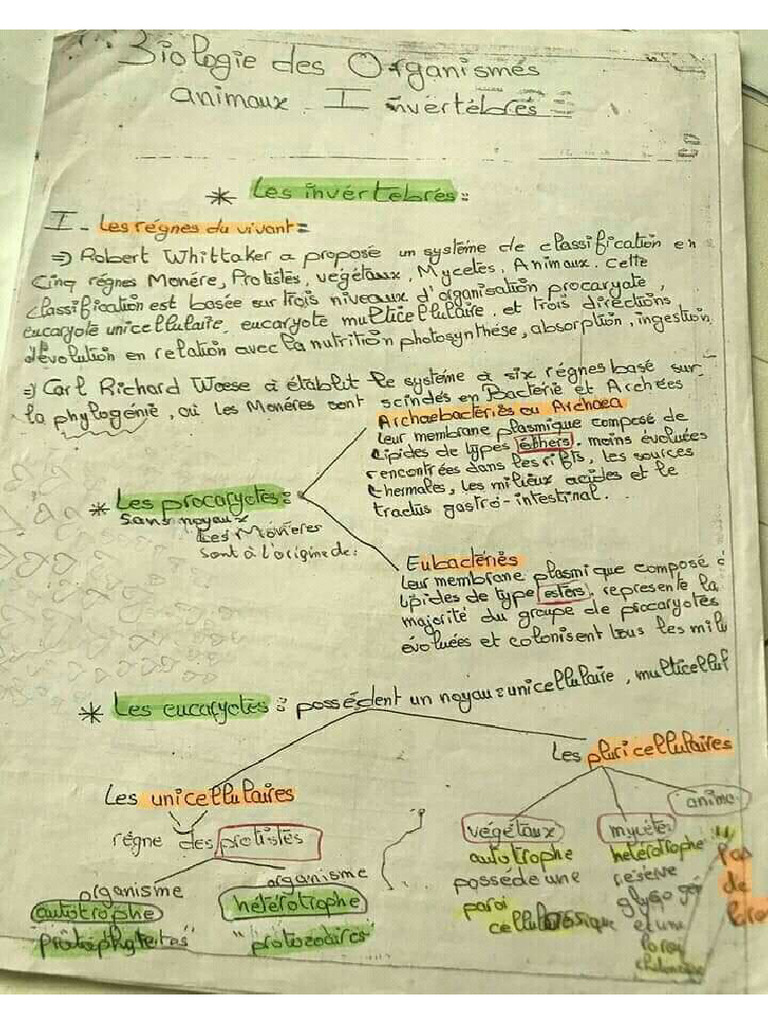 Biologie des Organismés
animaux - Invertébrés
* Les invertébrés:
I - Les régnes du vivant =
⇒ Robert Whittaker a proposé un systéme de classification en
Cinq régnes Monére, Protistés, végétaux, Mycetes, Animaux. Cette
classification est basée sur trois niveaux d'organisation procaryote,
eucaryote unicellulaire, eucaryote multicellulaire. et trois directions
d'évolution en relation avec la nutrition photosynthése, absorption, ingestion
⇒ Carl Richard Woese à établit le systéme à six régnes basé sur
la phylogénie, où les Monéres sont scindés en Bactérie et Archées
Archaebactériés ou Archaea
leur membrane plasmique composé de
lipides de types éthers. moins évoluées
rencontrées dans les rifts, les sources
thermales, les milieux acides et le
tractus gastro-intestinal.
* Les procaryotés:
Sans noyaux
Les Monéres
sont à l'origine de:
Eubactériés
leur membrane plasmique composé
lipides de type esters, represente la
majorité du groupe de procaryotés
évoluées et colonisent tous les mili
* Les eucaryotés: possédent un noyau = unicellulaire, multicellul
Les pluricellulaires
Les unicellulaires
anima
régne des protistés
végétaux mycéte
autotrophe hétérotrophe
posséde une réserve
paroi glycogé
cellulosique et une
organisme organisme
autotrophe hétérotrophe
"protophytes" "protozoaires"
Pas
de